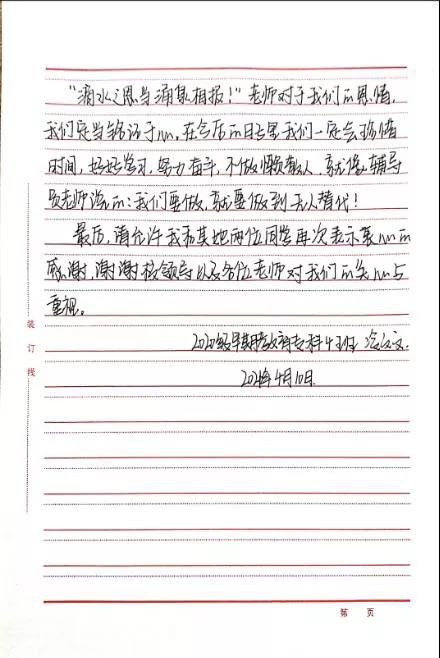 “滴水之恩当涌泉相报！”老师对于我们的恩情，
我们定当铭记于心，在今后的日子里我们一定会珍惜
时间，好好学习，努力奋斗，不做懒散人，就像辅导
员老师说的：我们要做，就要做到无人替代！
最后，请允许我和其他两位同学再次表示衷心的
感谢，谢谢校领导以及各位老师对我们的关心与
重视。
2020级早期教育专科4班
2021年4月10日
装订线
第 页